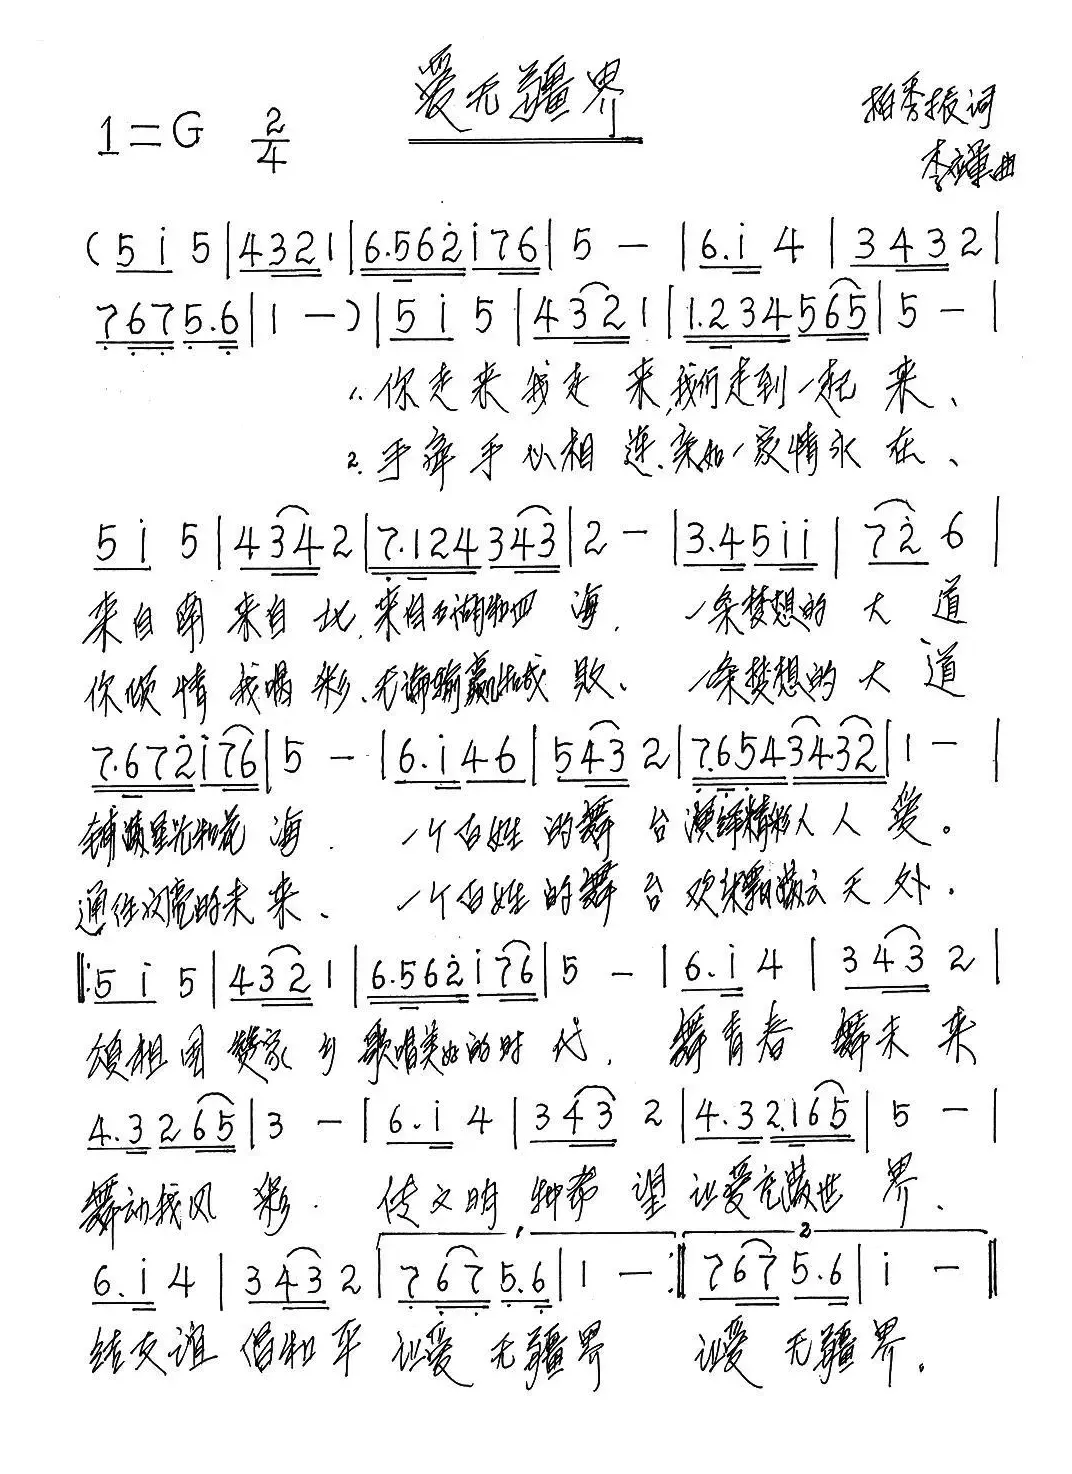 爱无疆界
1=G 2/4
柏秀振词
李 曲
( 5 i 5 | 4 3 2 1 | 6. 5 6 2 i 7 6 | 5 — | 6. i 4 | 3 4 3 2 |
7 6 7 5. 6 | 1 — ) | 5 i 5 | 4 3 2 1 | 1. 2 3 4 5 6 5 | 5 — |
1. 你走来我走来,我们走到一起来、
2. 手牵手心相连、亲如一家情永在、
5 i 5 | 4 3 4 2 | 7. 1 2 4 3 4 3 | 2 — | 3. 4 5 i i | 7 2 6 |
来自南来自北,来自五湖和四海, 一条梦想的大道
你倾情我喝彩、无论输赢和成败、 一条梦想的大道
7. 6 7 2 i 7 6 | 5 — | 6. i 4 6 | 5 4 3 2 | 7. 6 5 4 3 4 3 2 | 1 — |
铺满星光和花海. 一个百姓的舞台演绎精彩人人爱。
通往闪亮的未来、 一个百姓的舞台欢乐云天外.
‖: 5 i 5 | 4 3 2 1 | 6. 5 6 2 i 7 6 | 5 — | 6. i 4 | 3 4 3 2 |
颂祖国赞家乡歌唱美好的时代, 舞青春舞未来
4. 3 2 6 5 | 3 — | 6. i 4 | 3 4 3 2 | 4. 3 2. 1 6 5 | 5 — |
舞动我风彩. 传文明种希望让爱充满世界、
1. 2
6. i 4 | 3 4 3 2 | 7 6 7 5. 6 | 1 — :‖ 7 6 7 5. 6 | i — ‖
结友谊倡和平让爱无疆界 让爱无疆界。